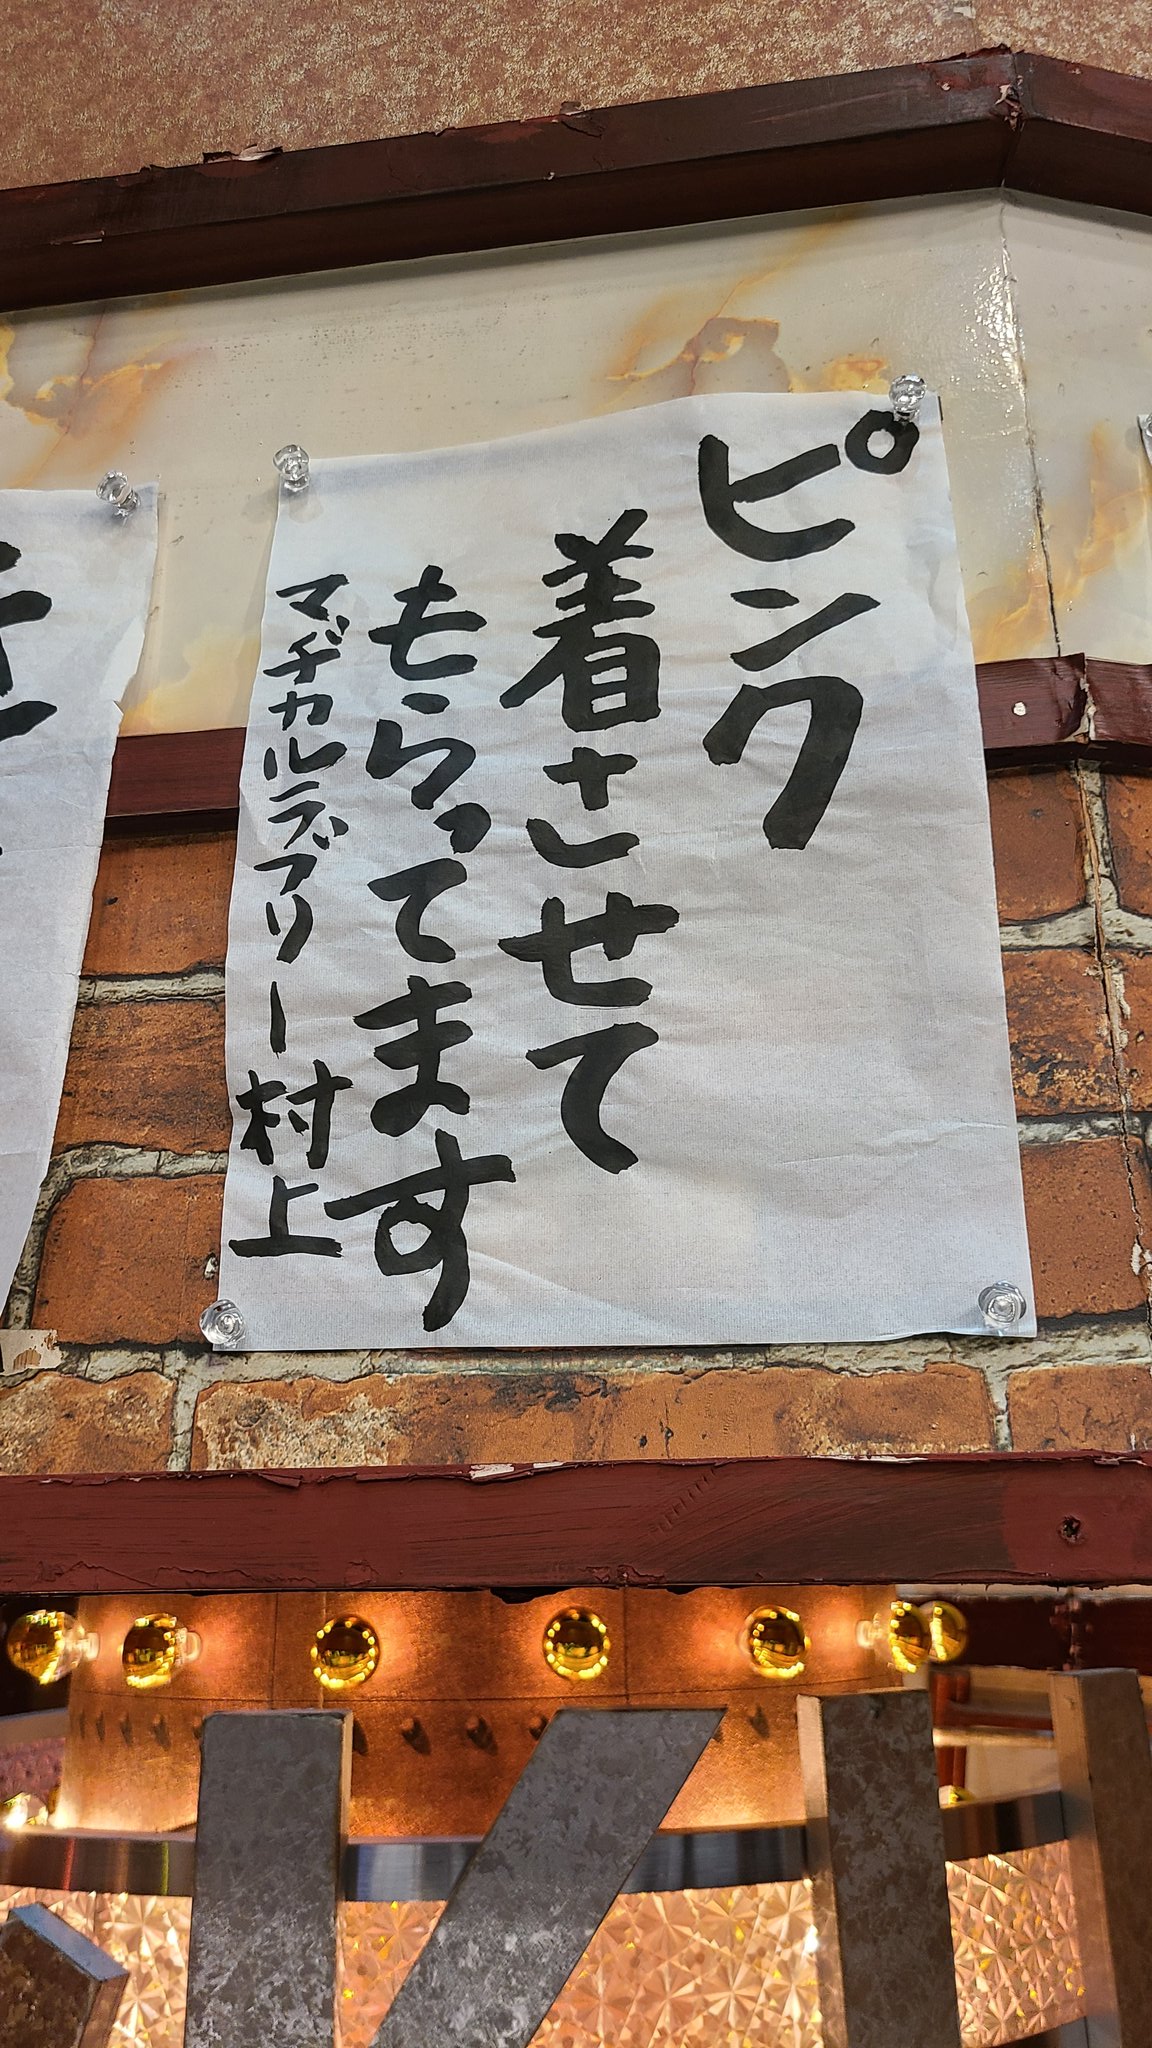 ピンク
着させて
もらってます
マヂカルラブリー村上